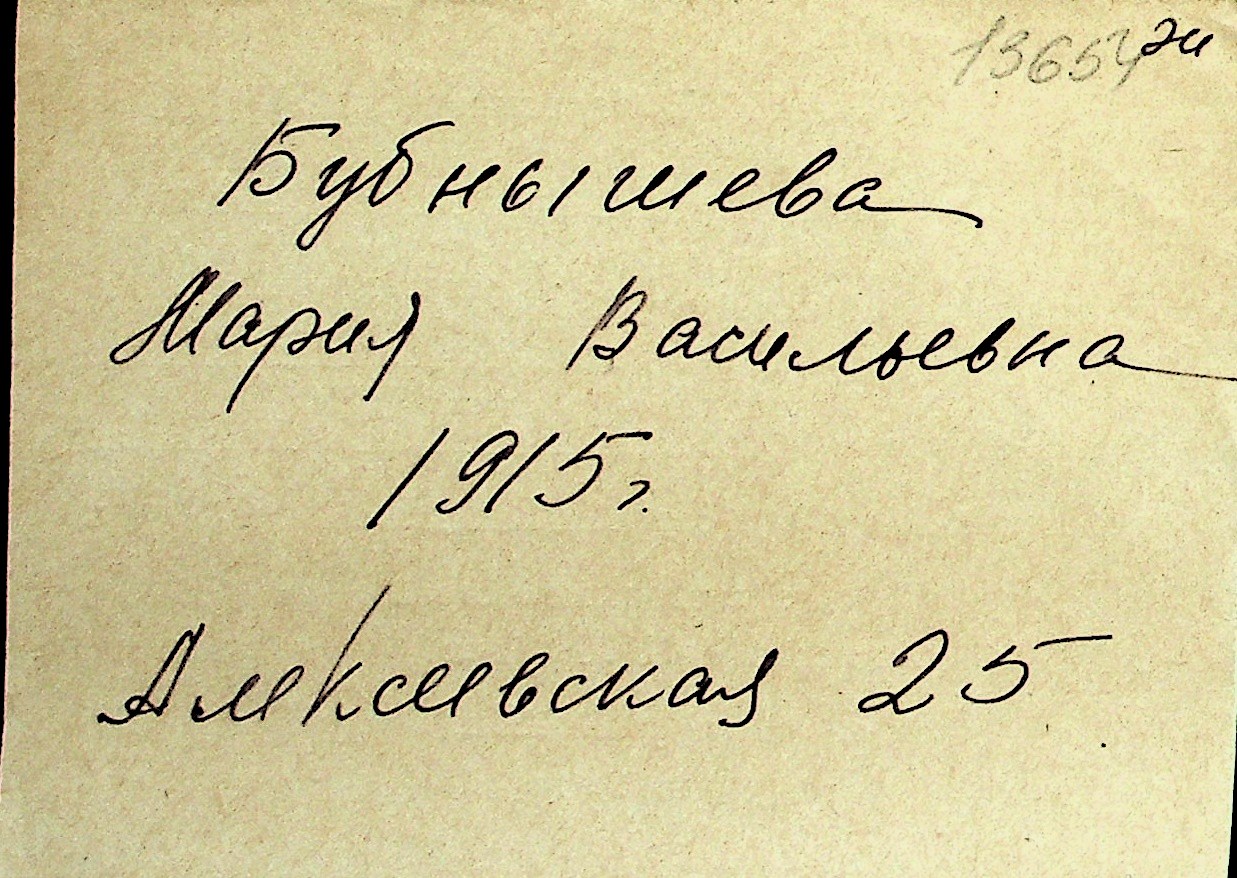 13654
Бубнышева
Мария Васильевна
1915 г.
Алексеевская 25